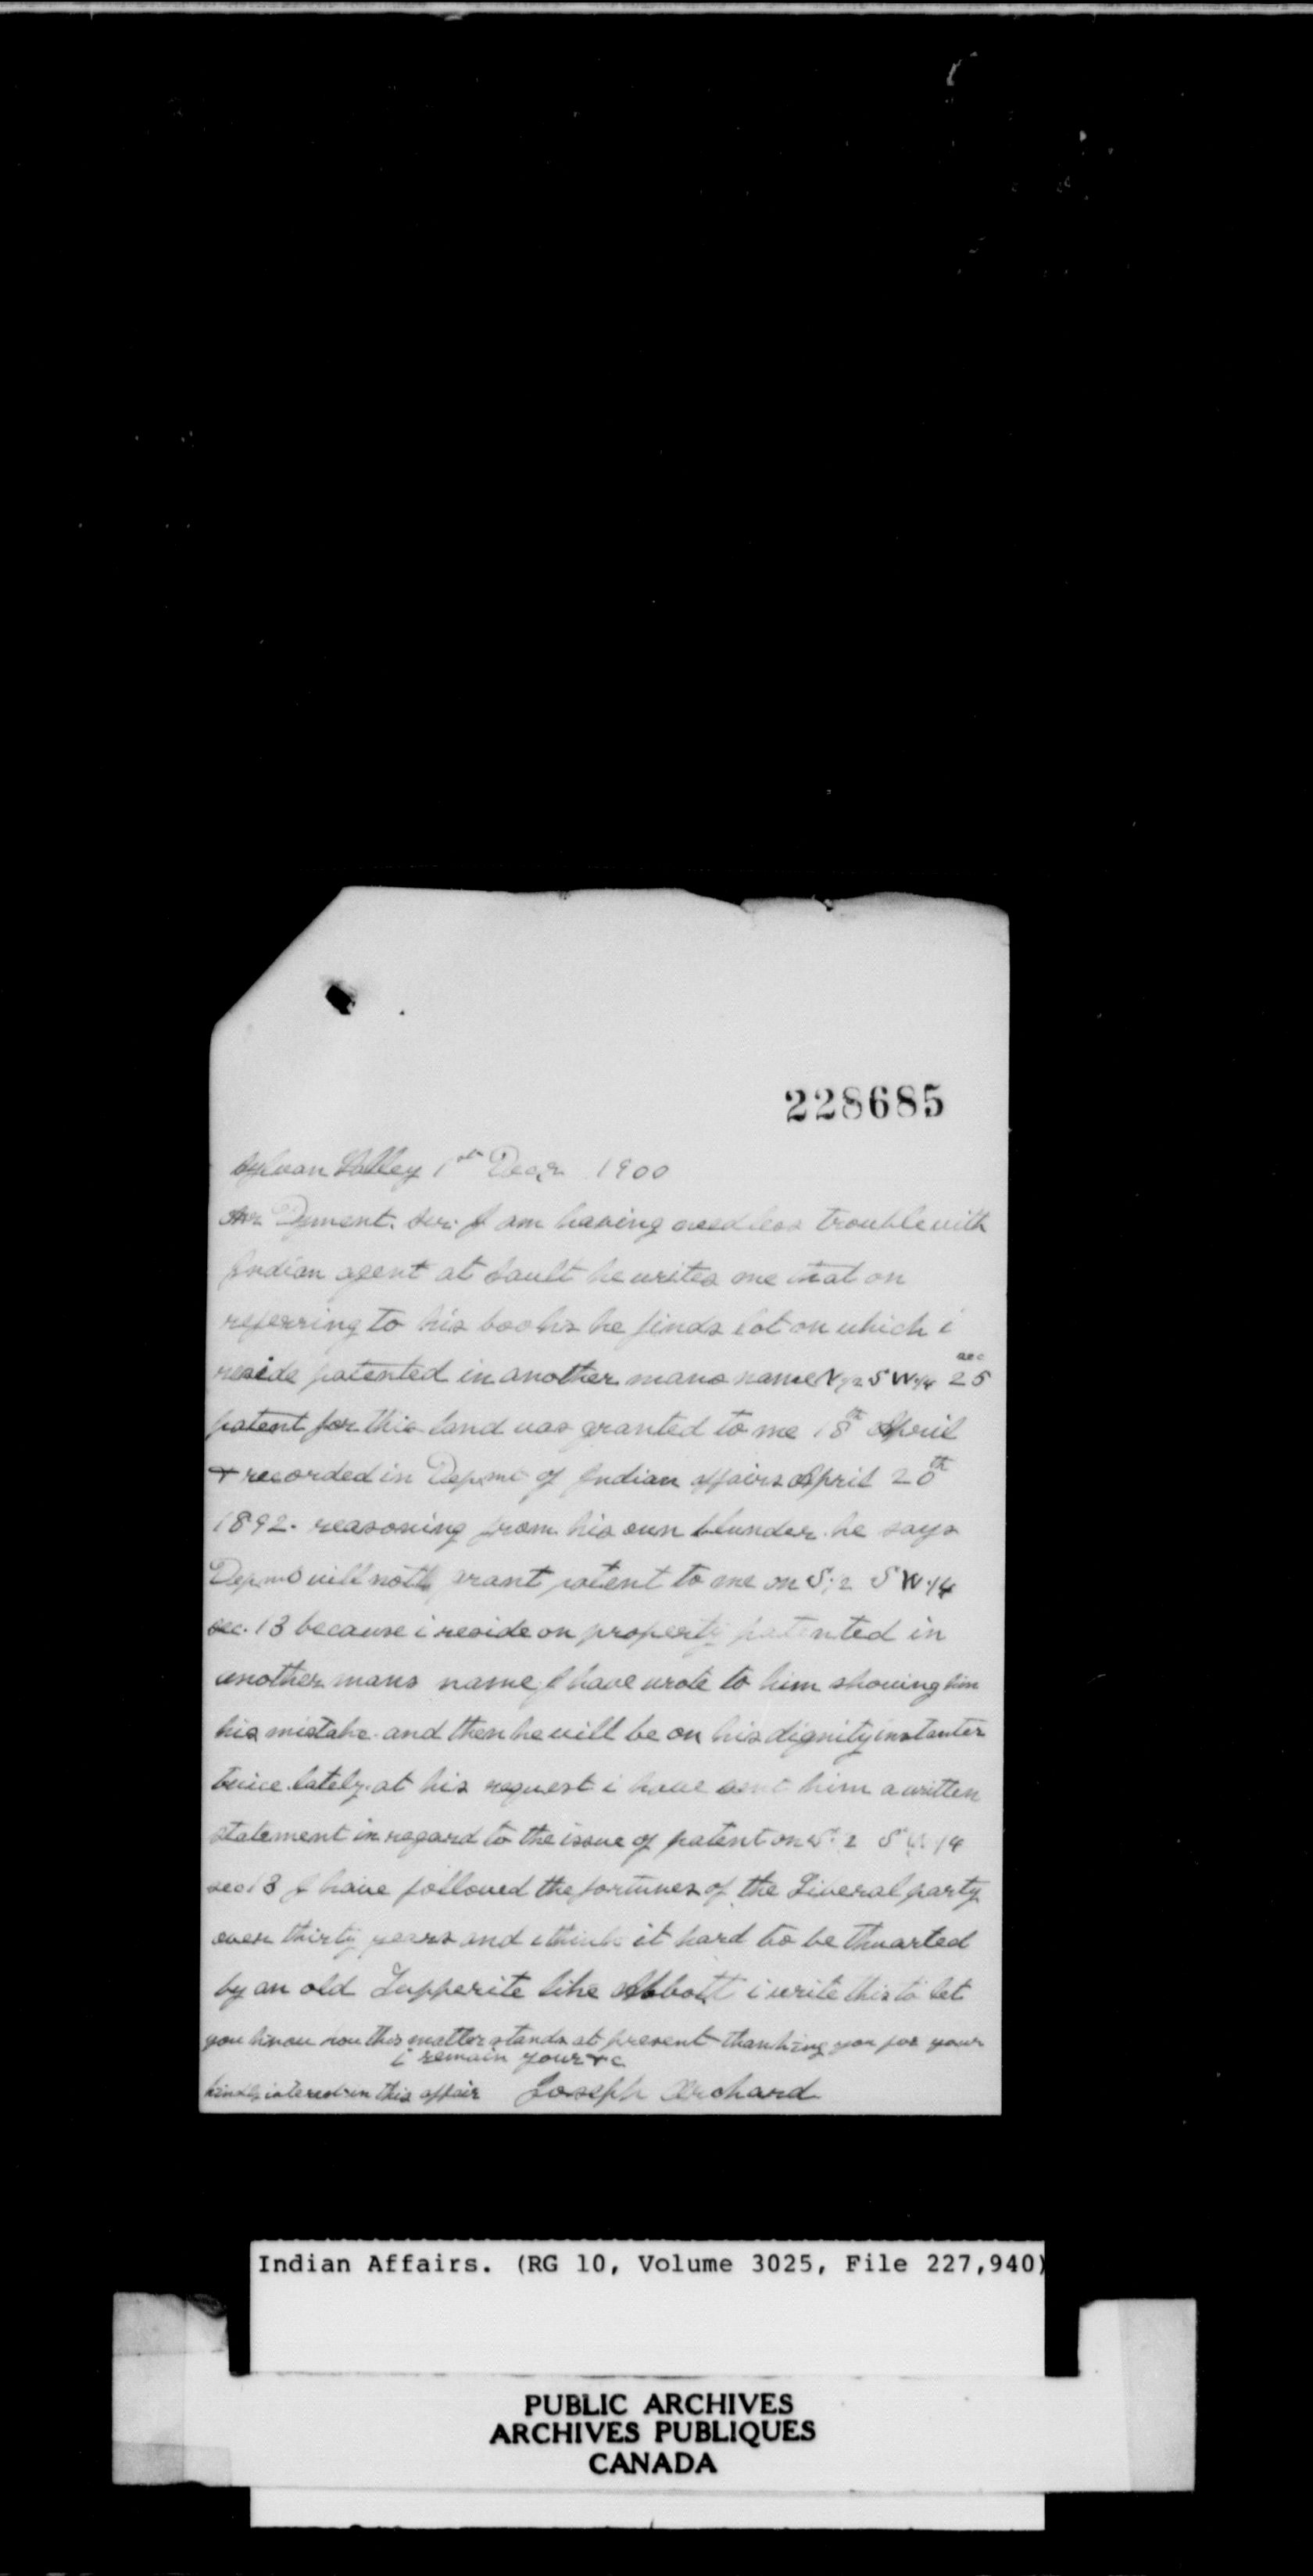 228685
Sylvan Valley 1st Decr 1900
Mr Dyment. Sir. I am having needless trouble with
Indian agent at Sault he writes me that on
referring to his books he finds lot on which i
reside patented in another mans name N 1/2 S W 1/4 sec 25
patent for this land was granted to me 18th April
& recorded in Depmt of Indian affairs April 20th
1892. reasoning from his own blunder he says
Depmt will not grant patent to me on S 1/2 S W 1/4
sec. 13 because i reside on property patented in
another mans name I have wrote to him showing him
his mistake. and then he will be on his dignity instanter
twice lately at his request i have sent him a written
statement in regard to the issue of patent on S 1/2 S W 1/4
sec 13 I have followed the fortunes of the Liberal party
over thirty years and i think it hard to be thwarted
by an old Tupperite like Abbott i write this to let
you know how this matter stands at present thanking you for your
kindly interest in this affair i remain your &c
Joseph Archard
Indian Affairs. (RG 10, Volume 3025, File 227,940)
PUBLIC ARCHIVES
ARCHIVES PUBLIQUES
CANADA